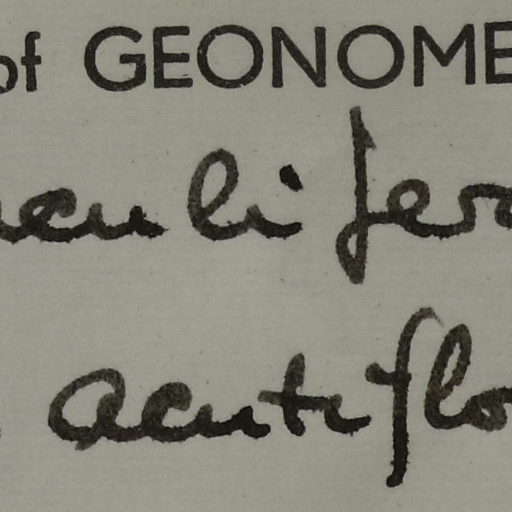 of GEONOME
aculifera
acutiflo